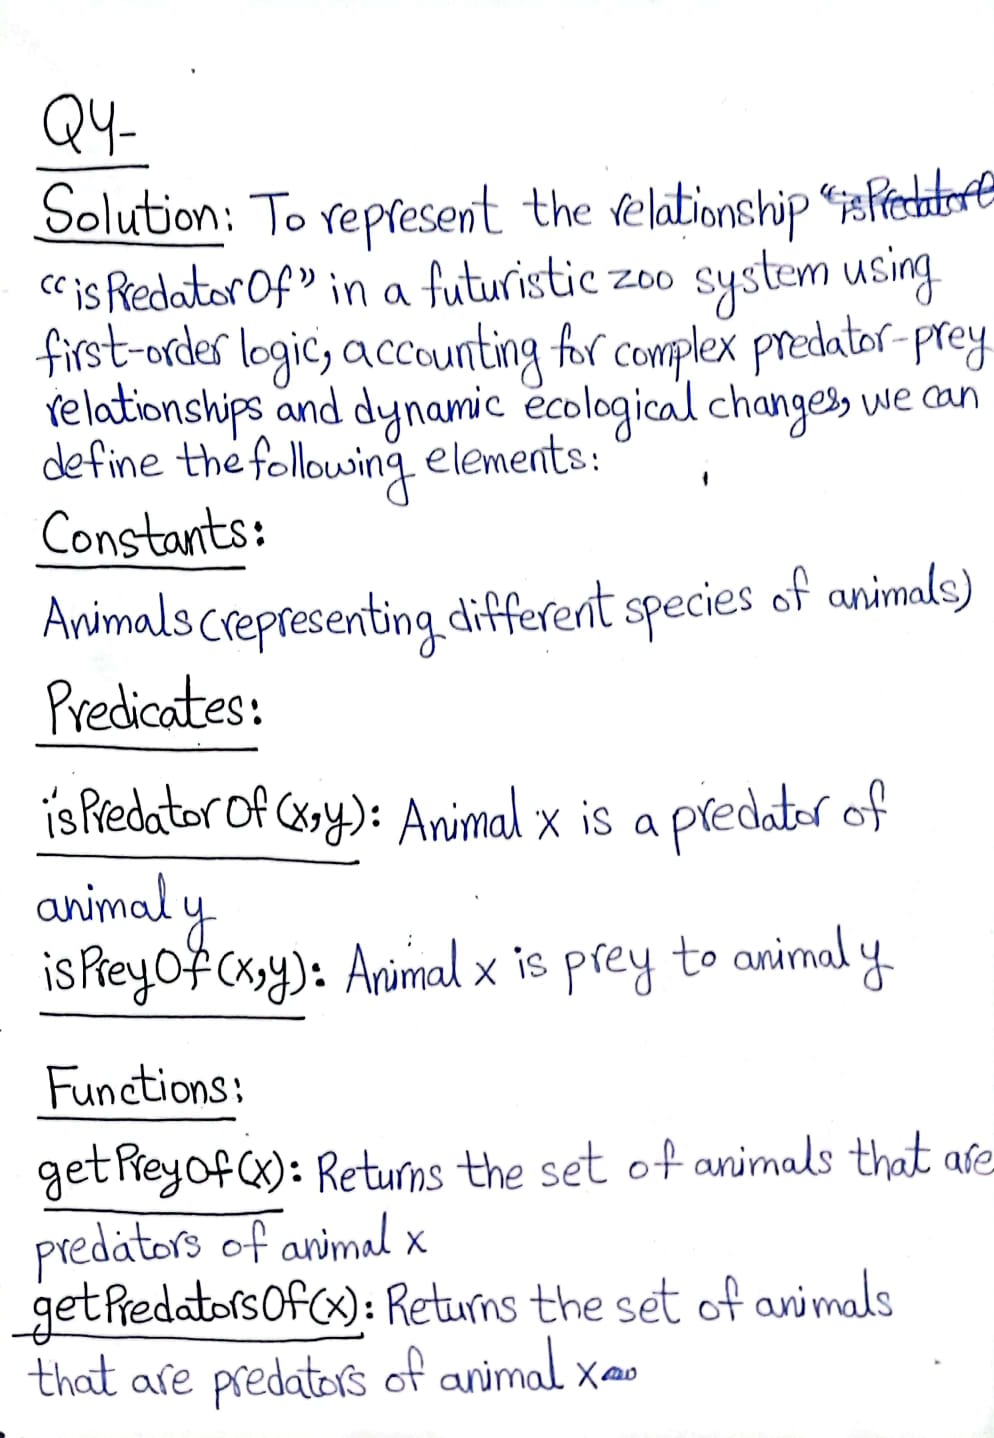 Q4-
Solution: To represent the relationship "isPredatorO
"isPredatorOf" in a futuristic zoo system using
first-order logic, accounting for complex predator-prey
relationships and dynamic ecological changes, we can
define the following elements:
Constants:
Animals (representing different species of animals)
Predicates:
isPredatorOf (x,y): Animal x is a predator of
animal y
isPreyOf (x,y): Animal x is prey to animal y
Functions:
getPreyOf(x): Returns the set of animals that are
predators of animal x
getPredatorsOf(x): Returns the set of animals
that are predators of animal x